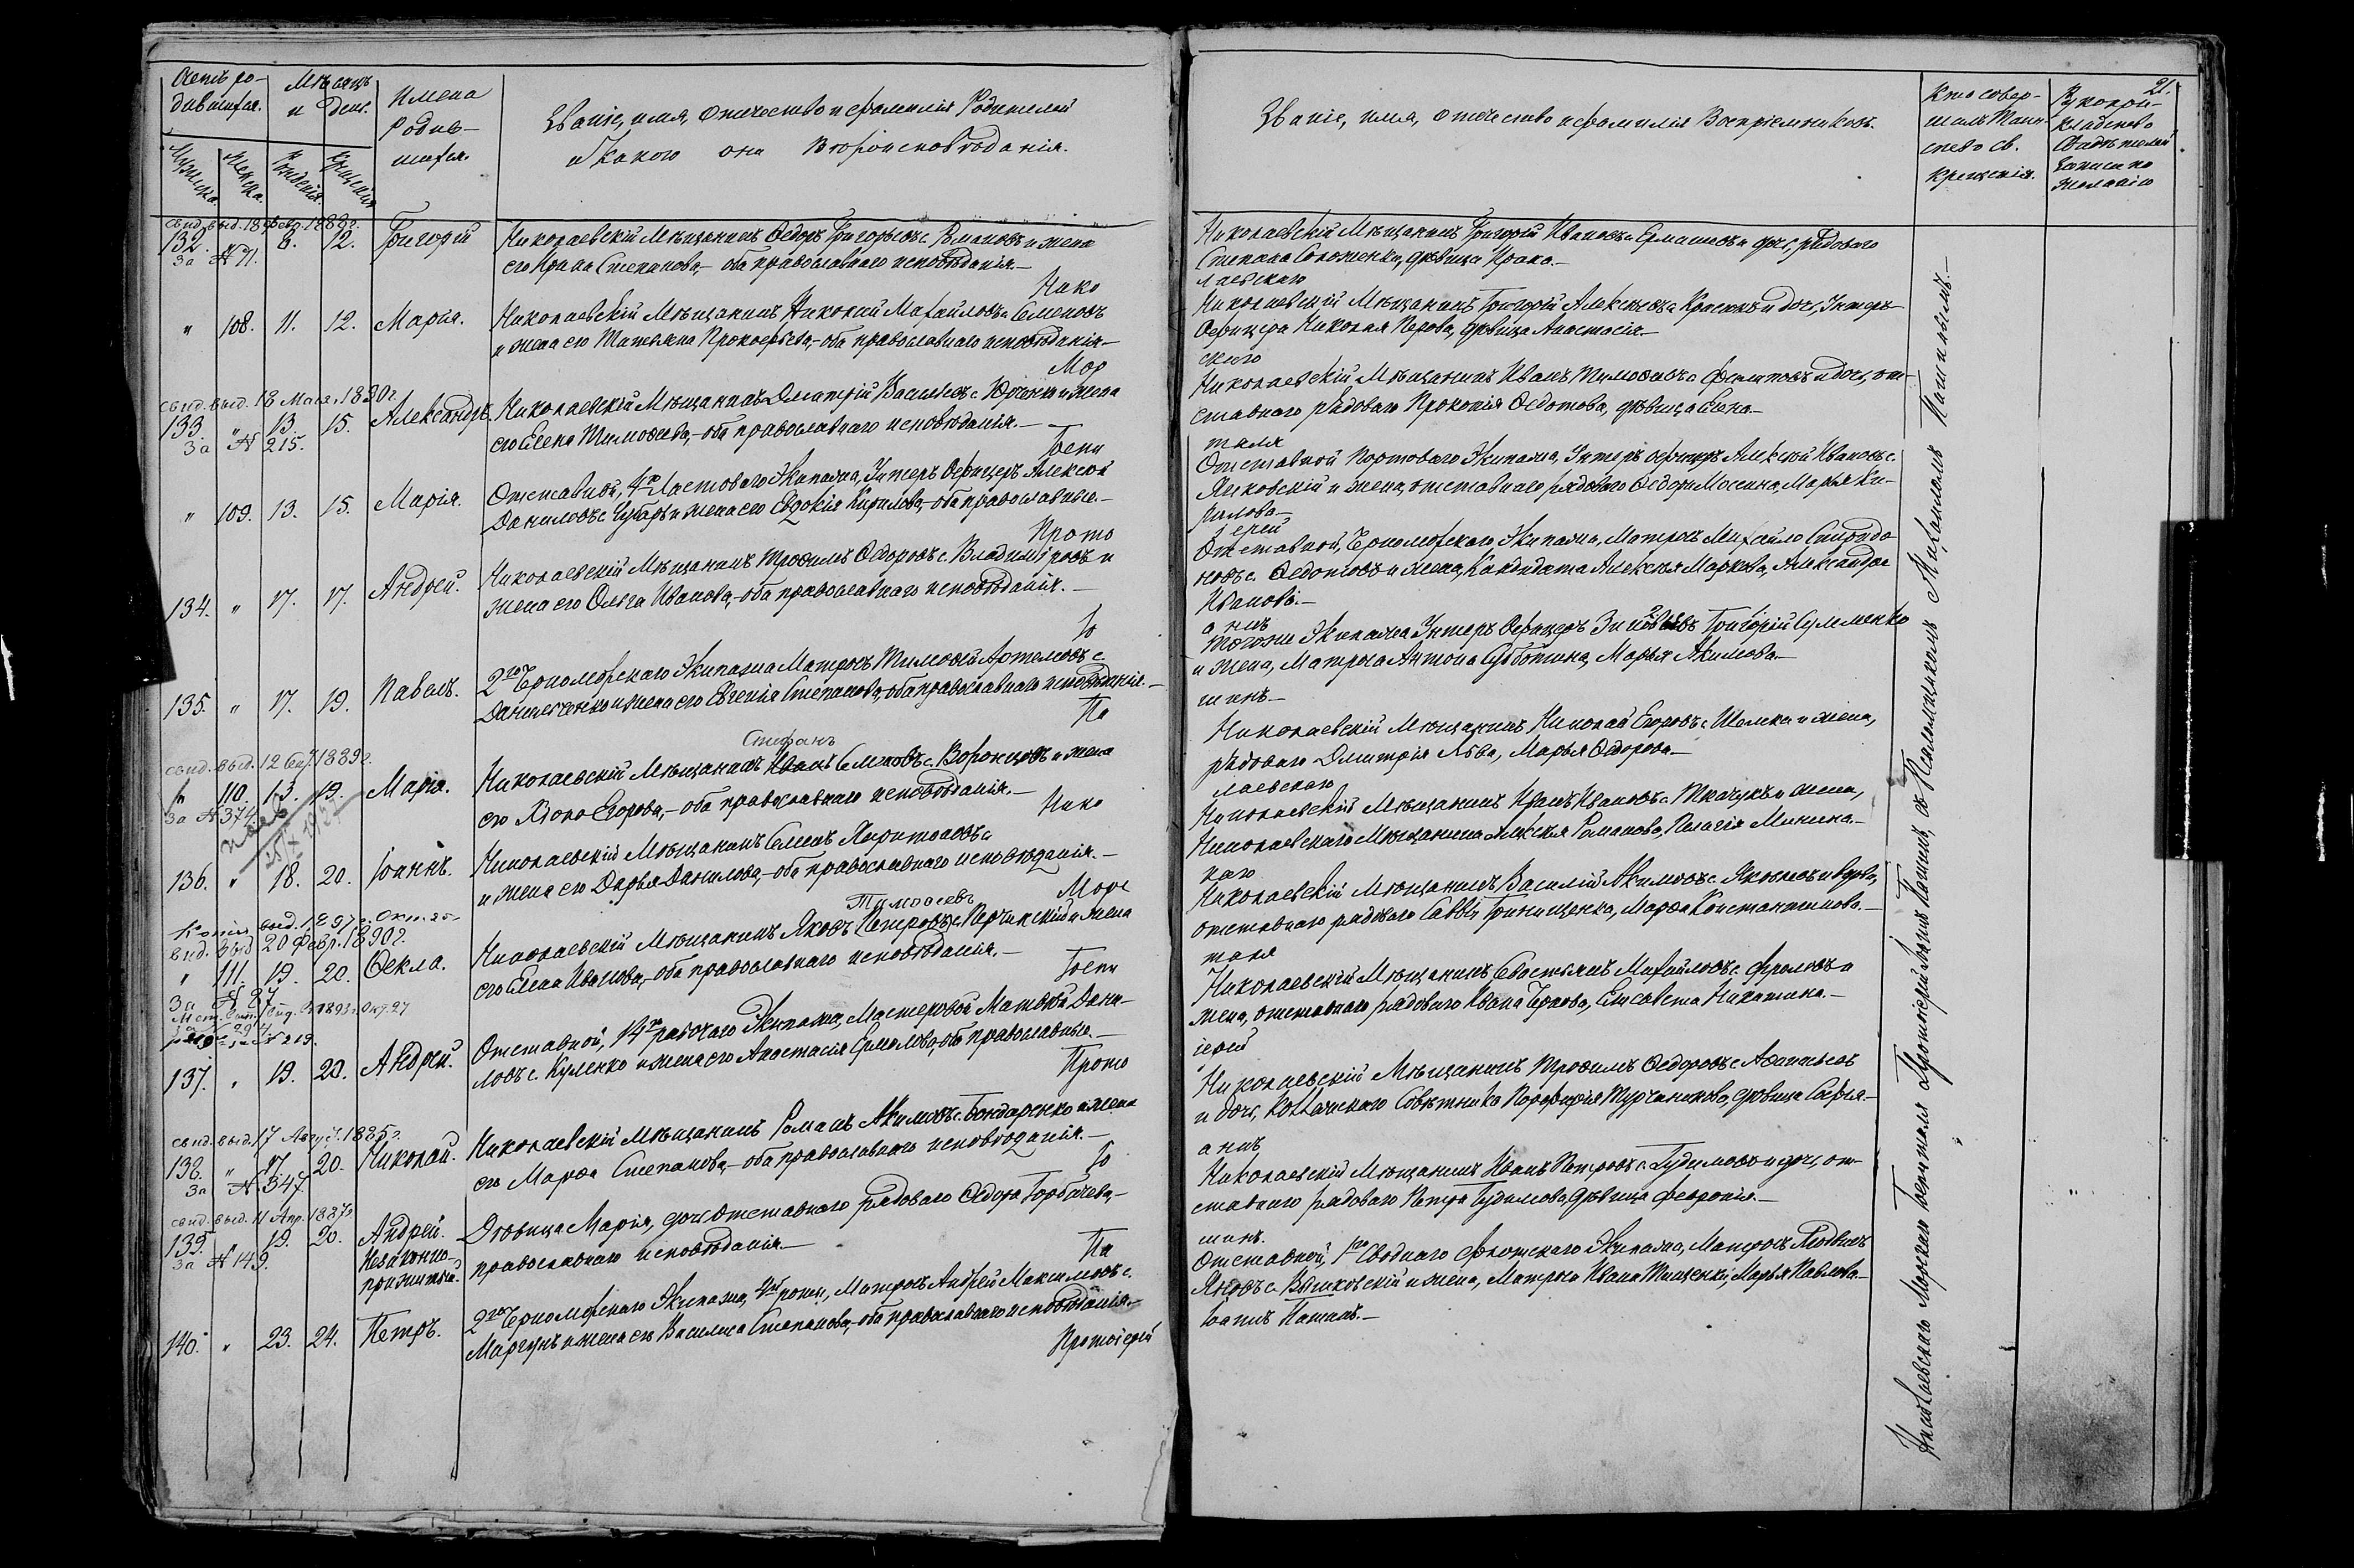 Счетъ ро-
дившихся.
Мѣсяцъ
и день.
Имена
Родив-
шихся.
Званіе, имя, отечество и фамилія Родителей
и какого они Вѣроисповѣданія.
Мужска.
Женска.
Рожденія.
Крещенія
свид. выд. 18 Февр. 1888 г.
132. 8. 12. Григорій
за № 71.
Николаевскій Мѣщанинъ Ѳедоръ Григорьевъ с. и жена
его Ирина Степанова,- оба православнаго исповѣданія.-
Нико
" 108. 11. 12. Марія.
Николаевскій Мѣщанинъ Николай Михайловъ с. Семеновъ
и жена его Татьяна Прокофьева,- оба православнаго исповѣданія-
Мор
свид. выд. 18 1890 г.
133. " 13. 15. Александръ.
за № 215.
Николаевскій Мѣщанинъ Дмитрій Васильевъ с. и жена
его Елена Тимофеева,- оба православнаго исповѣданія.-
Госпи
" 109. 13. 15. Марія.
Отставной, 4го Ластоваго Экипажа, Унтеръ Офицеръ Алексей
Даниловъ с. Чубарь и жена его Евдокія Кирилова,- оба православные.-
Прото
134. " 17. 17. Андрей.
Николаевскій Мѣщанинъ Трофимъ Ѳедоровъ с. Владиміровъ и
жена его Ольга Иванова,- оба православнаго исповѣданія.-
Іо
135. " 17. 19. Павелъ.
2го Черноморскаго Экипажа Матросъ Тимофей Артемовъ с.
Данильченко и жена его Евгенія Степанова,- оба православнаго исповѣданія.-
Па
свид. выд. 12 1889 г.
" 110. 13. 19. Марія.
за № 374.
Стефанъ
Николаевскій Мѣщанинъ Иванъ Семеновъ с. Воронцовъ и жена
его Егорова,- оба православнаго исповѣданія.-
Нико
136. " 18. 20. Іоаннъ.
Николаевскій Мѣщанинъ Семенъ Харитоновъ с.
и жена его Дарья Данилова,- оба православнаго исповѣданія.-
Море
Копія выд. 1897 г. Окт. 25
свид. выд. 20 Февр. 1890 г.
" 111. 19. 20. Ѳекла.
за № 87
Тимофеевъ
Николаевскій Мѣщанинъ Яковъ Петровъ с. и жена
его Елена Иванова,- оба православнаго исповѣданія.-
Госпи
137. " 19. 20. Андрей.
Отставной, 14го рабочаго Экипажа, Мастеровой Матвей Дани-
ловъ с. Куленко и жена его Анастасія Ермолова,- оба православные.-
Прото
свид. выд. 17 Авгус. 1885 г.
138. " 17. 20. Николай.
за № 347
Николаевскій Мѣщанинъ Романъ Акимовъ с. Бондаренко и жена
его Марфа Степанова,- оба православнаго исповѣданія.-
Іо
свид. выд. 11 Апр. 1887 г.
139. " 19. 20. Андрей.
за № 149.
Незаконно-
прижитый.
Дѣвица Марія, дочь отставнаго рядоваго Ѳедора Горбачева,-
православнаго исповѣданія.-
Па
140. " 23. 24. Петръ.
2го Черноморскаго Экипажа, 4й роты, Матросъ Андрей Максимовъ с.
Маргунъ и жена его Василиса Степанова,- оба православнаго исповѣданія.-
Протоіерей
21.
Званіе, имя, отечество и фамилія Воспріемниковъ.
Кто совер-
шалъ Таин-
ство св.
крещенія.
Рукопри-
кладство
Свидѣтелей
записи по
желанію
Николаевскій Мѣщанинъ Григорій Ивановъ с. Ермашовъ и дочь, рядоваго
Степана Соложенка, дѣвица Ирина.-
лаевскаго
Николаевскій Мѣщанинъ Григорій Алексѣевъ с. и дочь, Унтеръ-
Офицера Николая Перова, дѣвица Анастасія.-
скаго
Николаевскій Мѣщанинъ Иванъ Тимофеевъ с. Филиповъ и дочь, от-
ставнаго рядоваго Прокопія Ѳедотова, дѣвица Елена.-
таля
Отставной Портоваго Экипажа, Унтеръ офицеръ Алексѣй Ивановъ с.
Янковскій и жена, отставнаго рядоваго Ѳедора Мосина, Марья Ки-
рилова.-
іерей
Отставной, Черноморскаго Экипажа, Матросъ Михайло Спиридо
новъ с. Ѳедотовъ и жена, Кандидата Алексѣя Маркова, Александра
Иванова.-
аннъ
Тогоже Экипажа Унтеръ Офицеръ Григорій Сулеменко
и жена, Матроса Антона Суботина, Марья Акимова.-
шинъ-
Николаевскій Мѣщанинъ Николай Егоровъ с. и жена,
рядоваго Дмитрія Лева, Марья Ѳедорова.-
лаевскаго
Николаевскій Мѣщанинъ Иванъ Ивановъ с. Ткачукъ и жена,
Николаевскаго Мѣщанина Алексѣя Романова, Пелагія Минина.-
каго
Николаевскій Мѣщанинъ Василій Акимовъ с. Яковлевъ и вдова,
отставнаго рядоваго Саввы Гринищенка, Марфа Константинова.-
таля
Николаевскій Мѣщанинъ Севастьянъ Михайловъ с. Фроловъ и
жена, отставнаго рядоваго Ивана Чернова, Елисавета Никитина.-
іерей
Николаевскій Мѣщанинъ Трофимъ Ѳедоровъ с. Афанасьевъ
и дочь, Совѣтника Порфирія Турчанинова, дѣвица Софія.-
аннъ
Николаевскій Мѣщанинъ Иванъ Петровъ с. Гудимовъ и дочь, от-
ставнаго рядоваго Петра Гудимова, дѣвица Февронія.-
шинъ.
Отставной, 1го Своднаго Флотскаго Экипажа, Матросъ
с. и жена, Матроса Ивана Тищенки, Марья Павлова.-
Іоаннъ Пашинъ.-
Николаевскаго Морскаго Госпиталя Протоіерей Іоаннъ Пашинъ, съ Псаломщикомъ Пашиновымъ.-